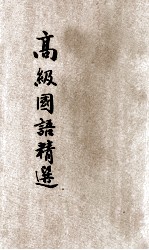 高級國語精選